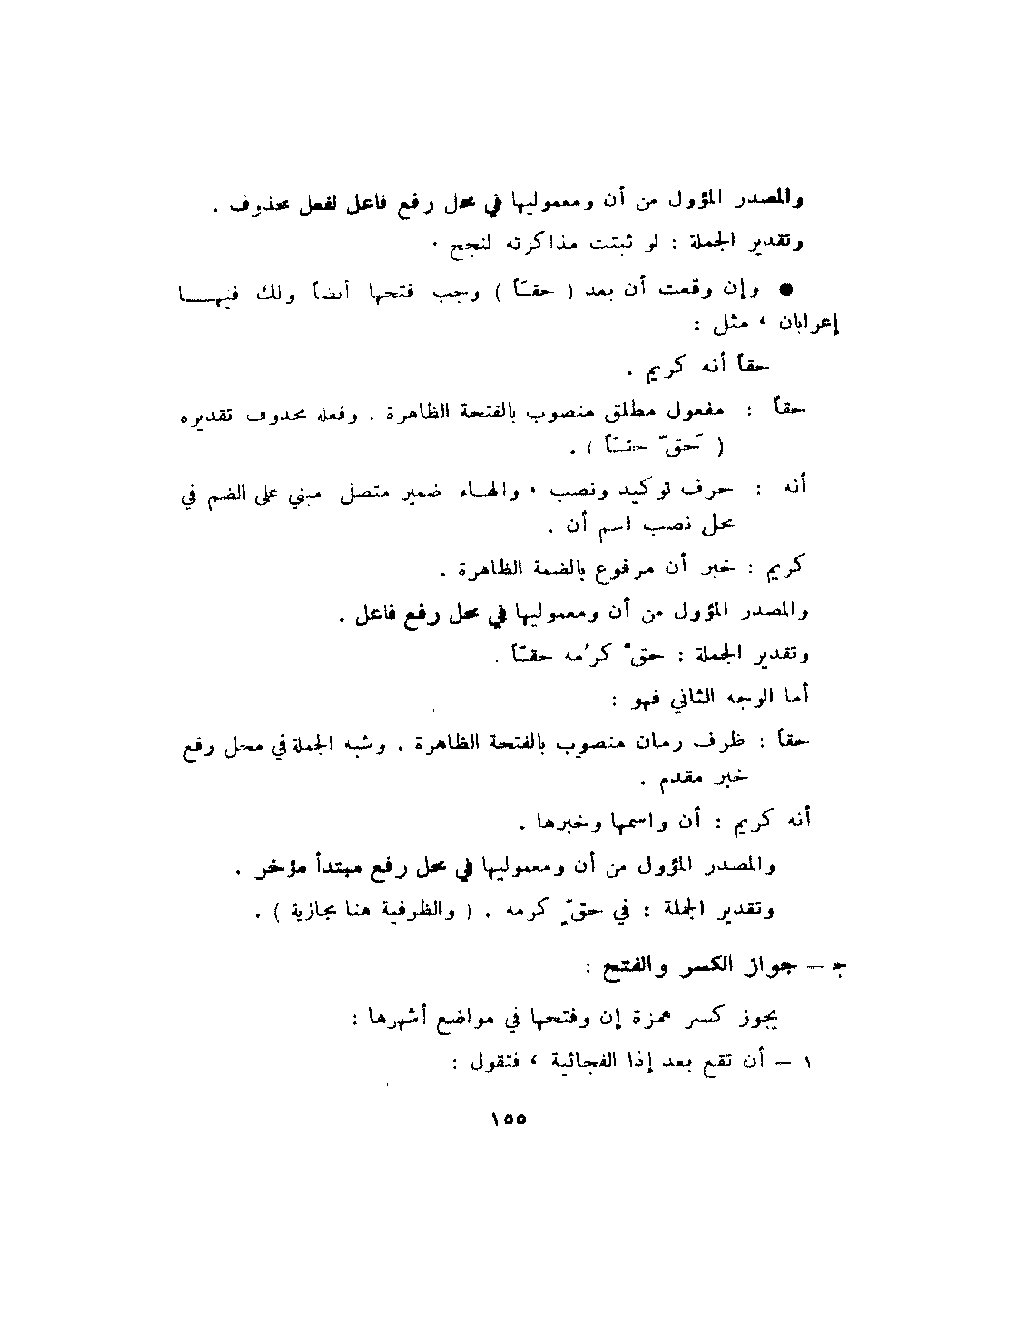 والمصدر المؤول من أن ومعموليها في محل رفع فاعل لفعل محذوف .
وتقدير الجملة : لو ثبتت مذاكرته لنجح .
● وإن وقعت أن بعد ( حقـّاً ) وجب فتحها أيضاً ولك فيهـــا
إعرابان ، مثل :
حقاً أنه كريم .
حقاً : مفعول مطلق منصوب بالفتحة الظاهرة . وفعله محذوف تقديره
( حَقّ حقـّاً ) .
أنه : حرف توكيد ونصب ، والهـاء ضمير متصل مبني على الضم في
محل نصب اسم أن .
كريم : خبر أن مرفوع بالضمة الظاهرة .
والمصدر المؤول من أن ومعموليها في محل رفع فاعل .
وتقدير الجملة : حقّ كرَمه حقـّاً .
أما الوجه الثاني فهو :
حقاً : ظرف زمان منصوب بالفتحة الظاهرة . وشبه الجملة في محل رفع
خبر مقدم .
أنه كريم : أن واسمها وخبرها .
والمصدر المؤول من أن ومعموليها في محل رفع مبتدأ مؤخر .
وتقدير الجملة : في حقٍّ كرمه . ( والظرفية هنا مجازية ) .
جـ – جواز الكسر والفتح :
يجوز كسر همزة إن وفتحها في مواضع أشهرها :
١ – أن تقع بعد إذا الفجائية ، فتقول :
١٥٥